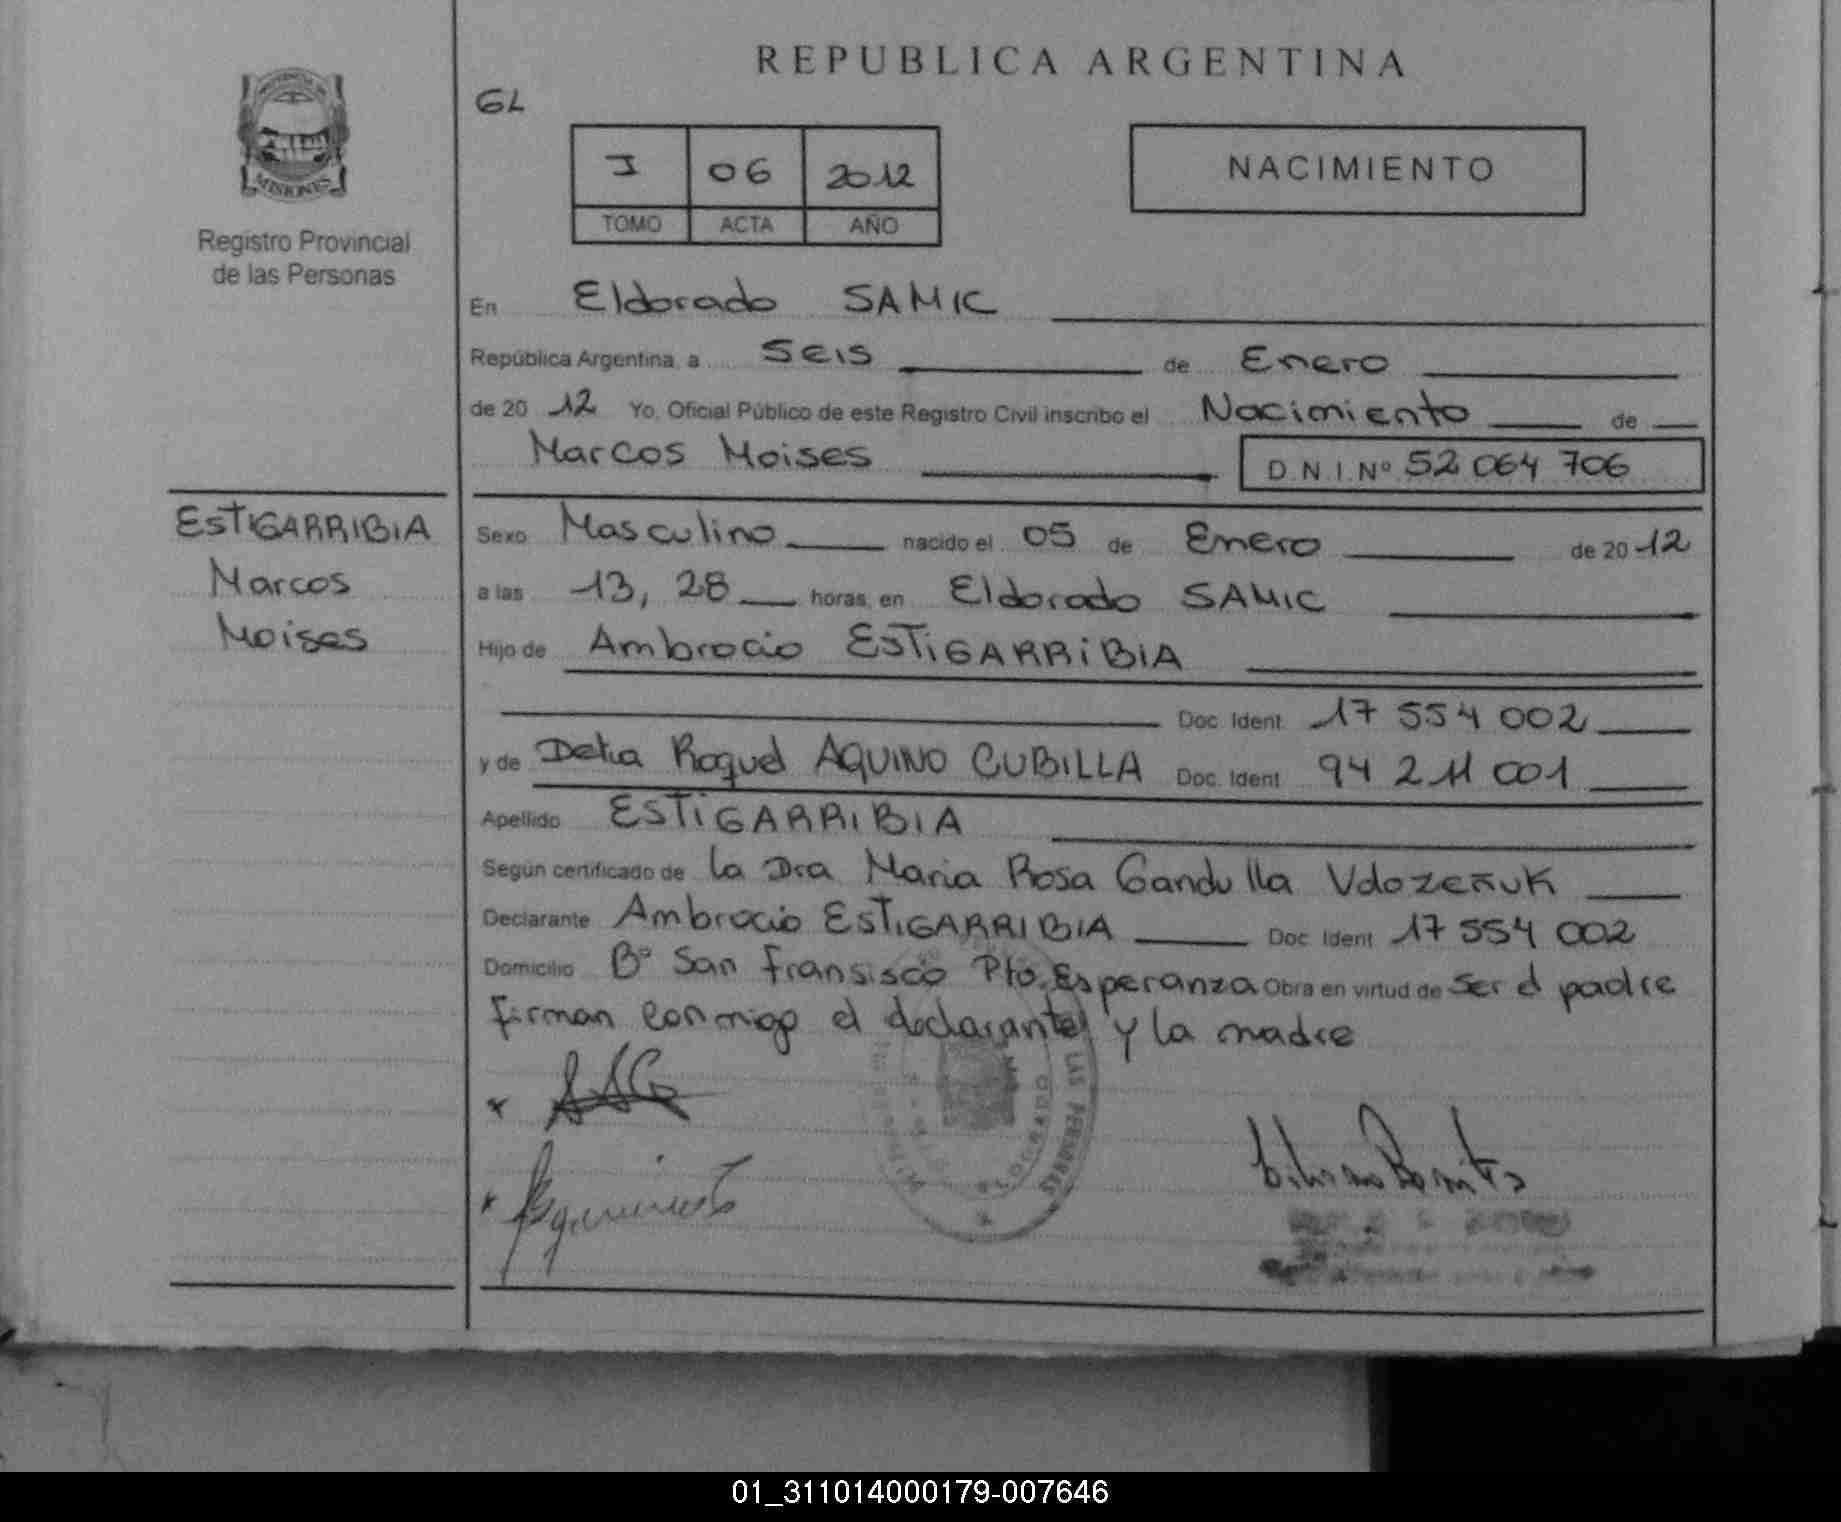 REPUBLICA ARGENTINA
GL
MISIONES
Registro Provincial
de las Personas
I 06 2012
TOMO ACTA AÑO
NACIMIENTO
En Eldorado SAMIC
República Argentina, a Seis de Enero
de 20 12 Yo, Oficial Público de este Registro Civil inscribo el Nacimiento de
Marcos Moises D.N.I.Nº 52 064 706
ESTIGARRIBIA
Marcos
Moises
Sexo Masculino nacido el 05 de Enero de 20 12
a las 13, 28 horas, en Eldorado SAMIC
Hijo de Ambrocio ESTIGARRIBIA
Doc. Ident. 17 554 002
y de Delia Raquel AQUINO CUBILLA Doc. Ident. 94 211 001
Apellido ESTIGARRIBIA
Según certificado de la Dra Maria Rosa Gandulla Vdozeñuk
Declarante Ambrocio ESTIGARRIBIA Doc. Ident 17 554 002
Domicilio Bº San Fransisco Pto. Esperanza Obra en virtud de ser el padre
firman conmigo el declarante y la madre
LAS PERSONAS
ELDORADO
01_311014000179-007646